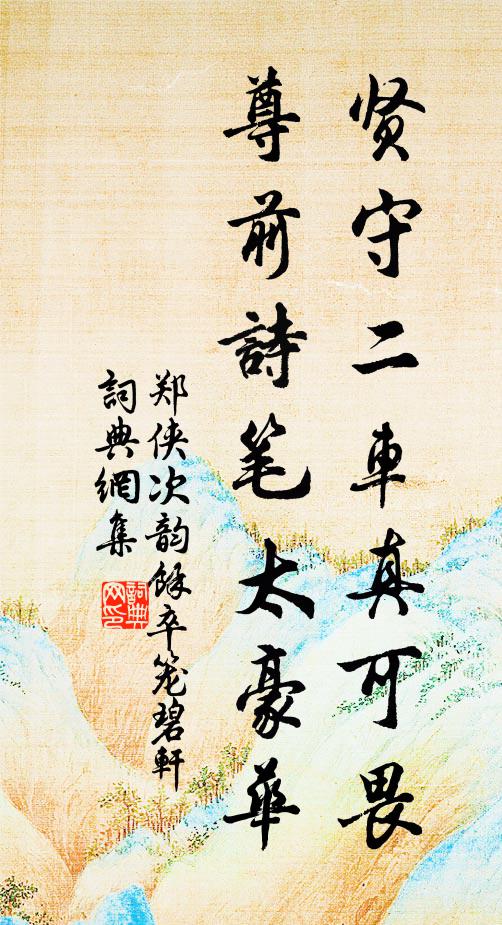 贤守二車真可畏
尊前詩笔太豪華
郑侠次韵餘卒笼碧軒
詞典網集
詞典
网印